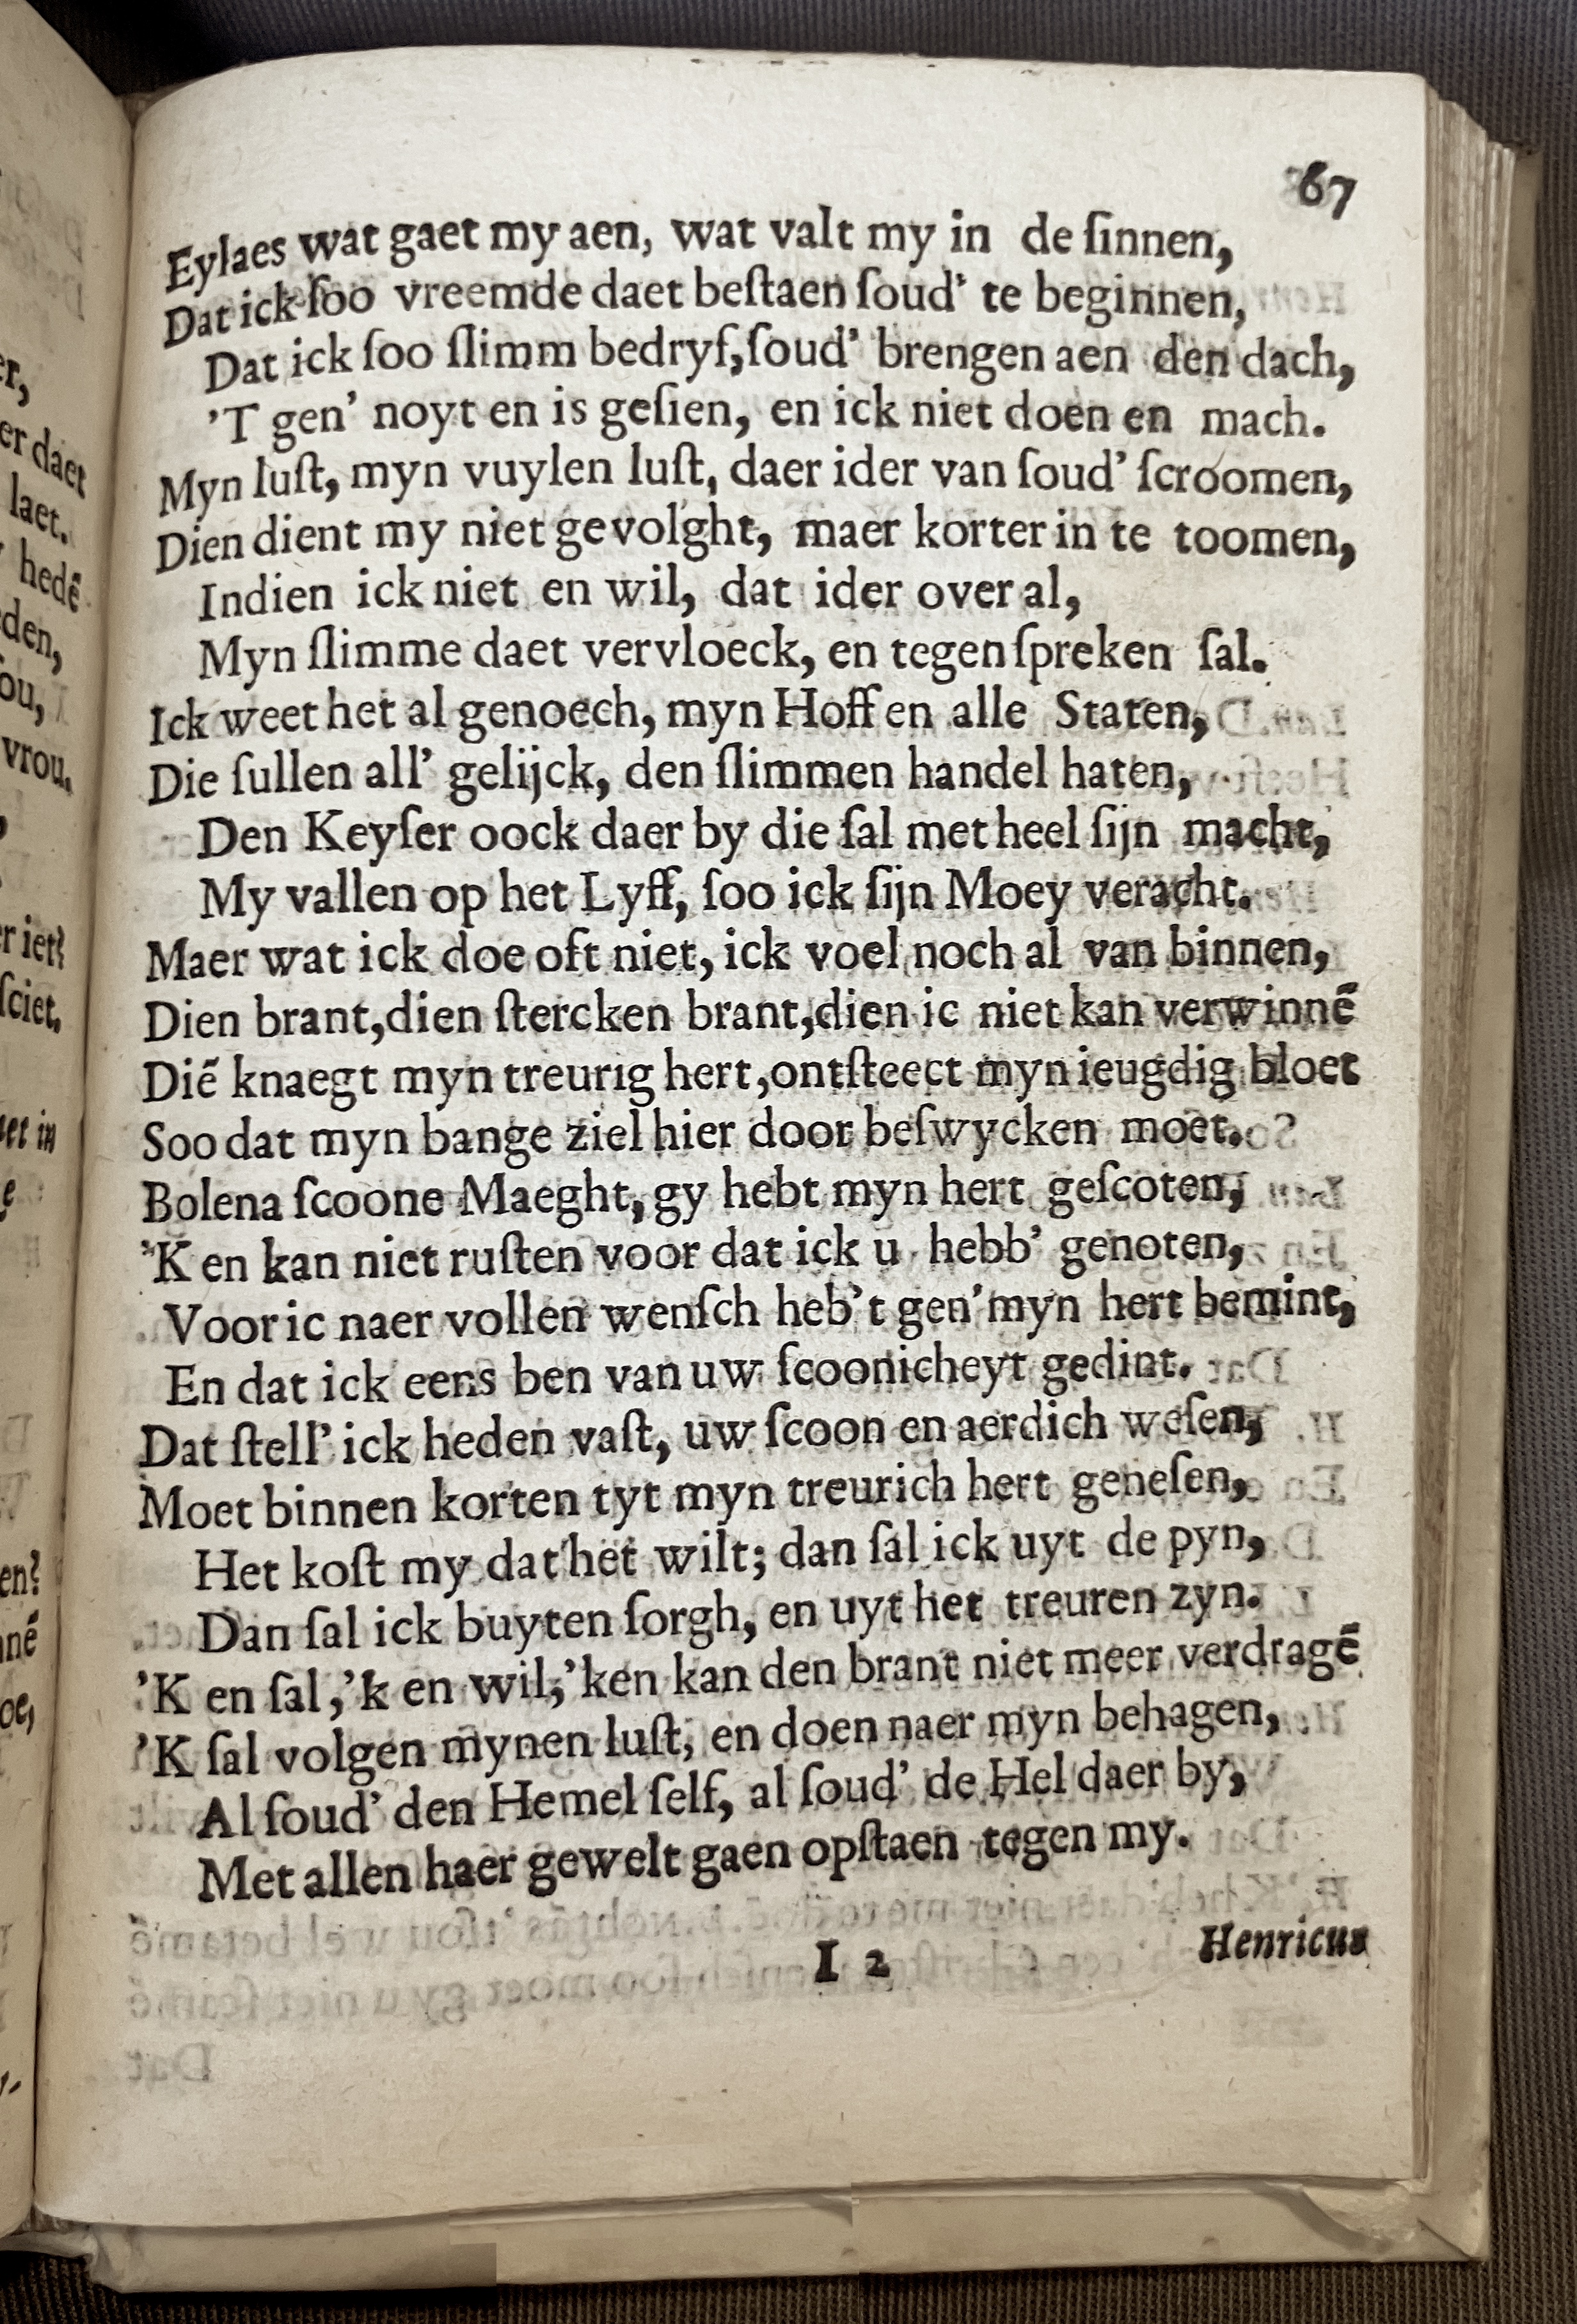 er,
er daet
laet.
hedē
den,
ou,
vrou.
r iet?
ſciet.
et in
e
en?
nē
oe,
67
Eylaes wat gaet my aen, wat valt my in de ſinnen,
Dat ick ſoo vreemde daet beſtaen ſoud' te beginnen,
Dat ick ſoo ſlimm bedryf, ſoud' brengen aen den dach,
'T gen' noyt en is geſien, en ick niet doen en mach.
Myn luſt, myn vuylen luſt, daer ider van ſoud' ſcroomen,
Dien dient my niet gevolght, maer korter in te toomen,
Indien ick niet en wil, dat ider over al,
Myn ſlimme daet vervloeck, en tegen ſpreken ſal.
Ick weet het al genoech, myn Hoff en alle Staten,
Die ſullen all' gelijck, den ſlimmen handel haten,
Den Keyſer oock daer by die ſal met heel ſijn macht,
My vallen op het Lyff, ſoo ick ſijn Moey veracht.
Maer wat ick doe oft niet, ick voel noch al van binnen,
Dien brant, dien ſtercken brant, dien ic niet kan verwinnē
Diē knaegt myn treurig hert, ontſteect myn ieugdig bloet
Soo dat myn bange ziel hier door beſwycken moet.
Bolena ſcoone Maeght, gy hebt myn hert geſcoten,
'K en kan niet ruſten voor dat ick u hebb' genoten,
Voor ic naer vollen wenſch heb't gen' myn hert bemint,
En dat ick eens ben van uw ſcoonicheyt gedint.
Dat ſtell' ick heden vaſt, uw ſcoon en aerdich weſen,
Moet binnen korten tyt myn treurich hert geneſen,
Het koſt my dat het wilt; dan ſal ick uyt de pyn,
Dan ſal ick buyten ſorgh, en uyt het treuren zyn.
'K en ſal, 'k en wil, 'ken kan den brant niet meer verdragē
'K ſal volgen mynen luſt, en doen naer myn behagen,
Al ſoud' den Hemel ſelf, al ſoud' de Hel daer by,
Met allen haer gewelt gaen opſtaen tegen my.
I 2
Henricus